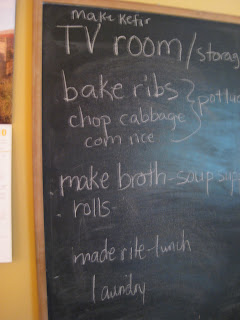 make kefir
TV room/storag
bake ribs } potluc
chop cabbage
corn rice
. make broth-soup sup
. rolls-
made rite-lunch
laundry